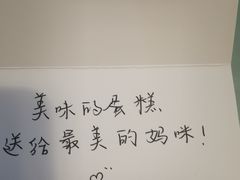 美味的蛋糕
送给最美的妈咪!